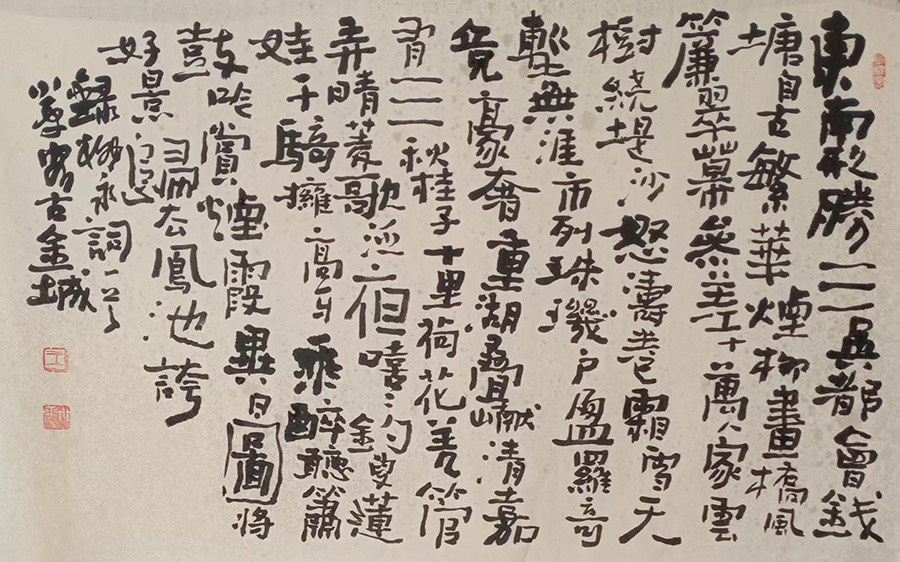 東南形勝三吳都會錢
塘自古繁華煙柳畫橋風
簾翠幕參差十萬人家雲
樹繞堤沙怒濤卷霜雪天
塹無涯市列珠璣戶盈羅綺
竟豪奢重湖疊巘清嘉
有三秋桂子十里荷花羌管
弄晴菱歌泛夜嘻嘻釣叟蓮
娃千騎擁高牙乘醉聽簫
鼓吟賞煙霞異日圖將
好景歸去鳳池誇
錄柳永詞一首
古金城